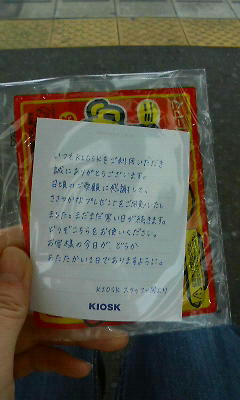 いつもKIOSKをご利用いただき
誠にありがとうございます。
日頃のご愛顧に感謝して、
ささやかなプレゼントをご用意いたし
ました。まだまだ寒い日が続きます。
どうぞこちらをお使いください。
お客様の今日が、どうか
あたたかい1日でありますように。
KIOSK スタッフ一同より
KIOSK